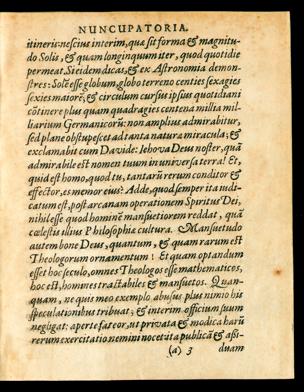 NUNCUPATORIA.
itineris nescius interim, qua sit forma & magnitu-
do Solis, & quam longinquum iter, quod quotidie
permeat. Si eidem dicas, & ex Astronomia demon-
stres: Solē esse globum, globo terreno centies sexagies
sexies maiorē, & circulum cursus ipsius quotidiani
cōtinere plus quam quadragies centena millia mil-
liarium Germanicorū: non amplius admirabitur,
sed plane obstupescet ad tanta naturæ miracula; &
exclamabit cum Davide: Iehova Deus noster, quā
admirabile est nomen tuum in universa terra! Et,
quid est homo, quod tu, tantarū rerum conditor &
effector, es memor eius? Adde, quod semper ita iudi-
catum est, post arcanam operationem Spiritus Dei,
nihil esse quod hominē mansuetiorem reddat, quā
cœlestis illius Philosophiæ cultura. Mansuetudo
autem bone Deus, quantum, & quam rarum est
Theologorum ornamentum! Et quam optandum
esset hoc seculo, omnes Theologos esse mathematicos,
hoc est, homines tractabiles & mansuetos. Quan-
quam, ne quis meo exemplo abusus plus nimio his
speculationibus tribuat; & interim officium suum
negligat: aperte fateor, ut privata & modica harū
rerum exercitatio nemini nocet: ita publicā & assi-
(a) 3 duam